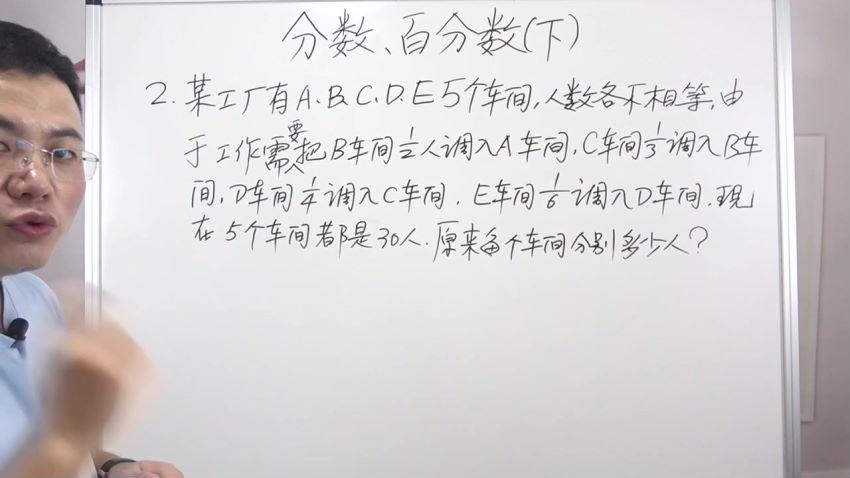 分数、百分数(下)
2. 某工厂有A.B.C.D.E 5个车间,人数各不相等,由
于工作需要把B车间1/2人调入A车间,C车间1/3调入B车
间,D车间1/4调入C车间.E车间1/6调入D车间.现
在5个车间都是30人.原来每个车间分别多少人?